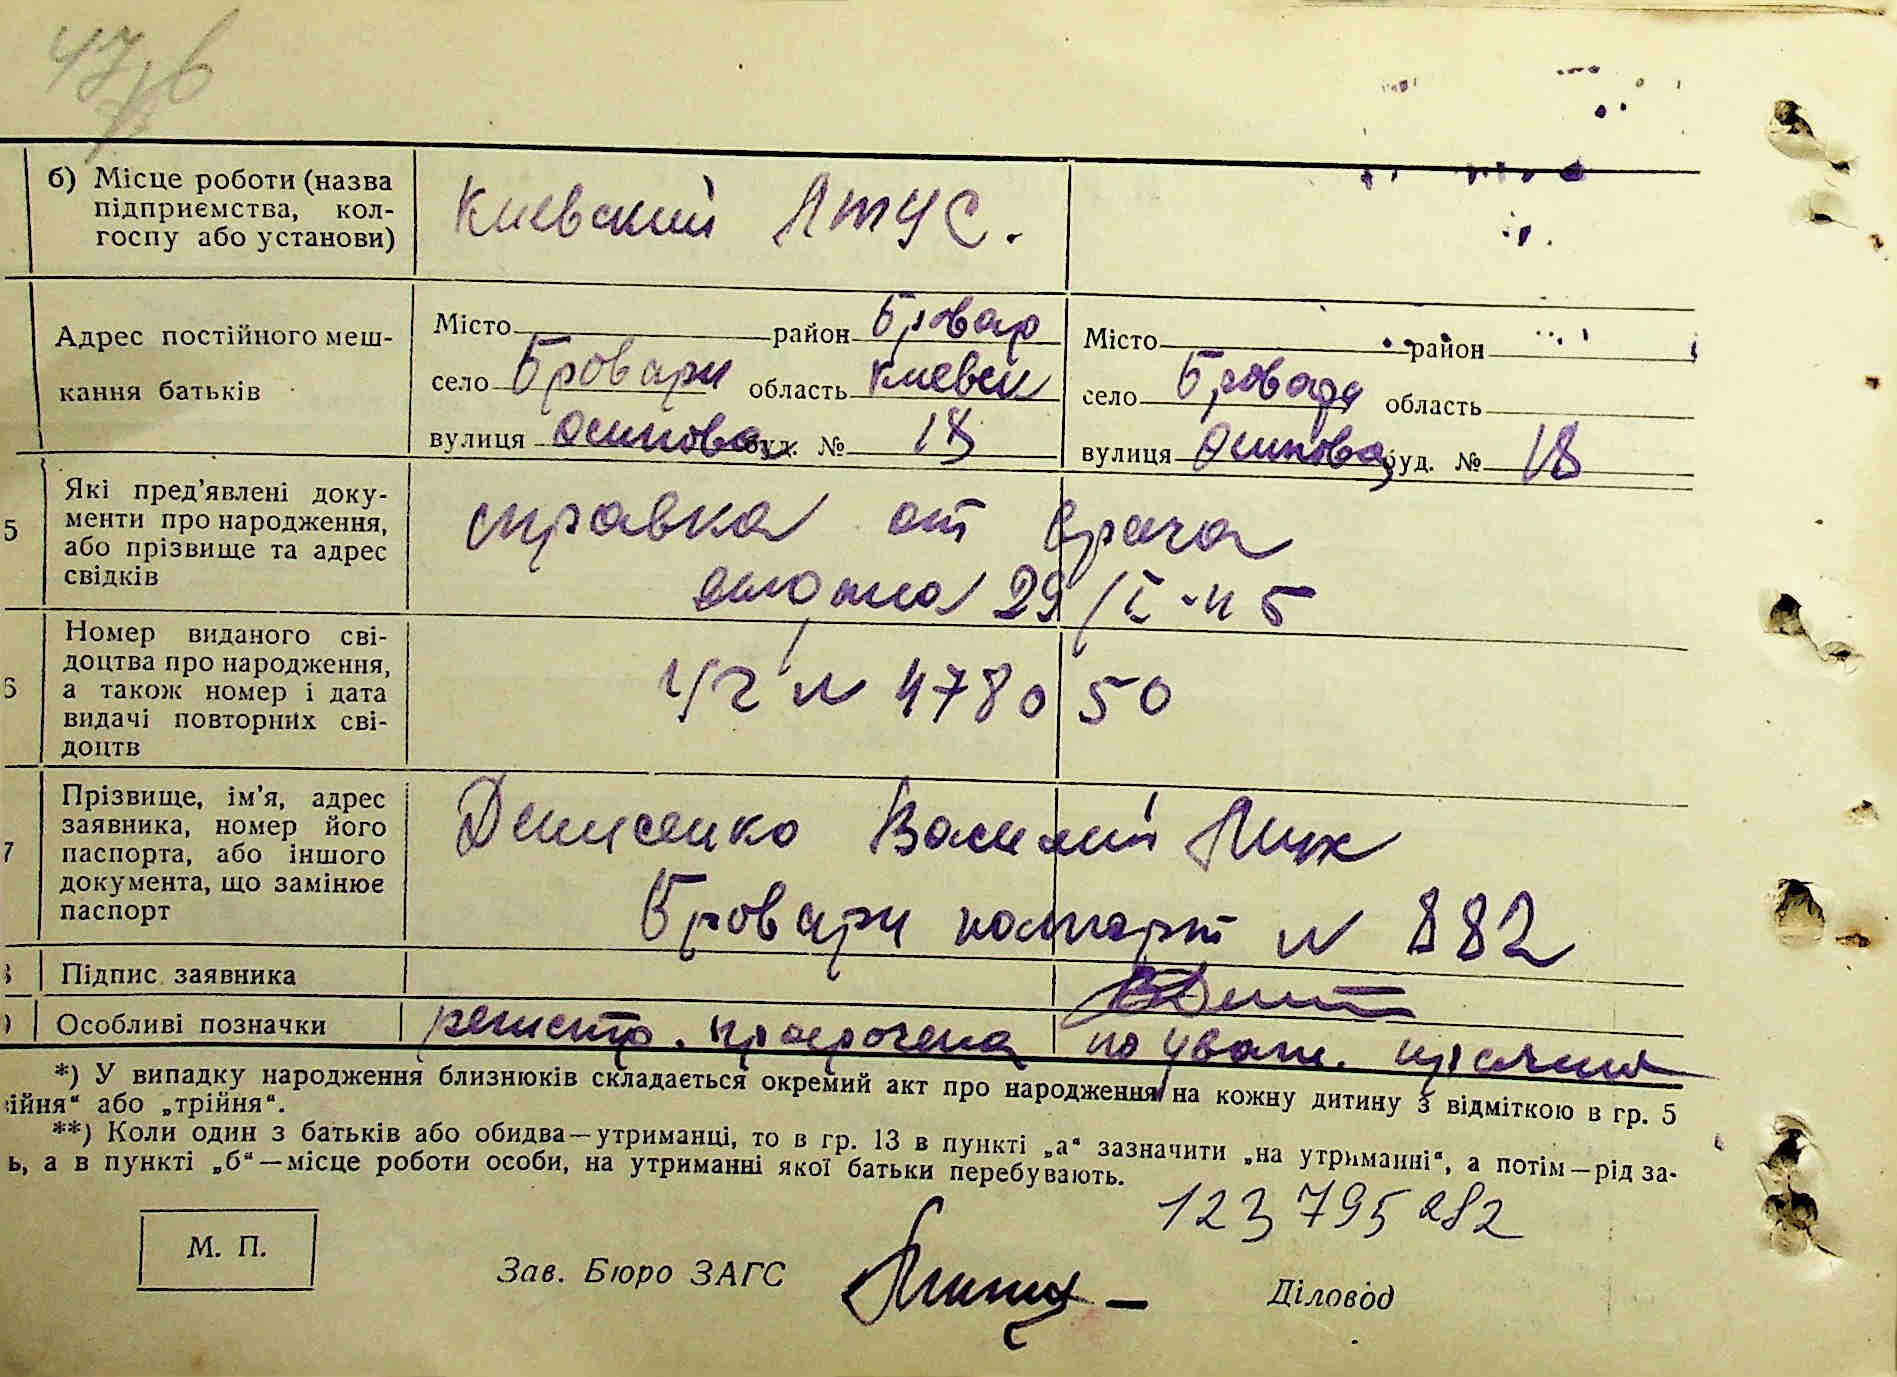 б) Місце роботи (назва
підприємства, кол-
госпу або установи)
Киевский ЛТУС.
Адрес постійного меш-
кання батьків
Місто район Бровар
село Бровари область Киевск
вулиця Осипова буд. № 18
Місто район
село Бровари область
вулиця Осипова буд. № 18
5 Які пред'явлені доку-
менти про народження,
або прізвище та адрес
свідків
справка от врача
29/I-45
6 Номер виданого сві-
доцтва про народження,
а також номер і дата
видачі повторних сві-
доцтв
№ 478050
7 Прізвище, ім'я, адрес
заявника, номер його
паспорта, або іншого
документа, що замінює
паспорт
Денисенко Василий
Бровари паспорт № 882
Підпис заявника
Особливі позначки
регистр. просрочена по уваж. причине
*) У випадку народження близнюків складається окремий акт про народження на кожну дитину з відміткою в гр. 5
ійня“ або „трійня“.
**) Коли один з батьків або обидва—утриманці, то в гр. 13 в пункті „а“ зазначити „на утриманні“, а потім—рід за-
ь, а в пункті „б“—місце роботи особи, на утриманні якої батьки перебувають.
123 795 282
М. П.
Зав. Бюро ЗАГС
Діловод